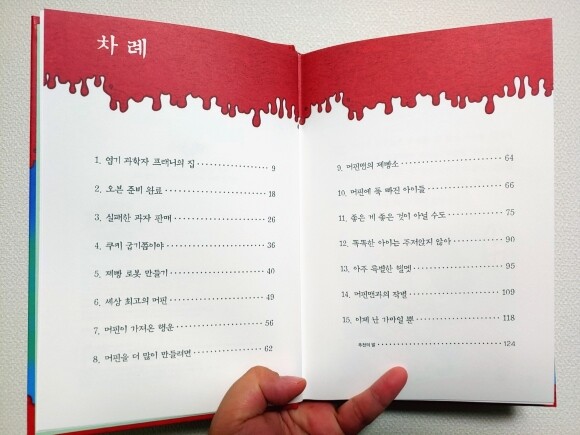 차례
1. 엽기 과학자 프래니의 집 9
2. 오븐 준비 완료 18
3. 실패한 과자 판매 26
4. 쿠키 굽기쯤이야 36
5. 제빵 로봇 만들기 40
6. 세상 최고의 머핀 49
7. 머핀이 가져온 행운 56
8. 머핀을 더 많이 만들려면 62
9. 머핀맨의 제빵소 64
10. 머핀에 푹 빠진 아이들 66
11. 좋은 게 좋은 것이 아닐 수도 75
12. 똑똑한 아이는 주저앉지 않아 90
13. 아주 특별한 헬멧 95
14. 머핀맨과의 작별 109
15. 이제 난 가봐야 할 뿐 118
추천의 말 124